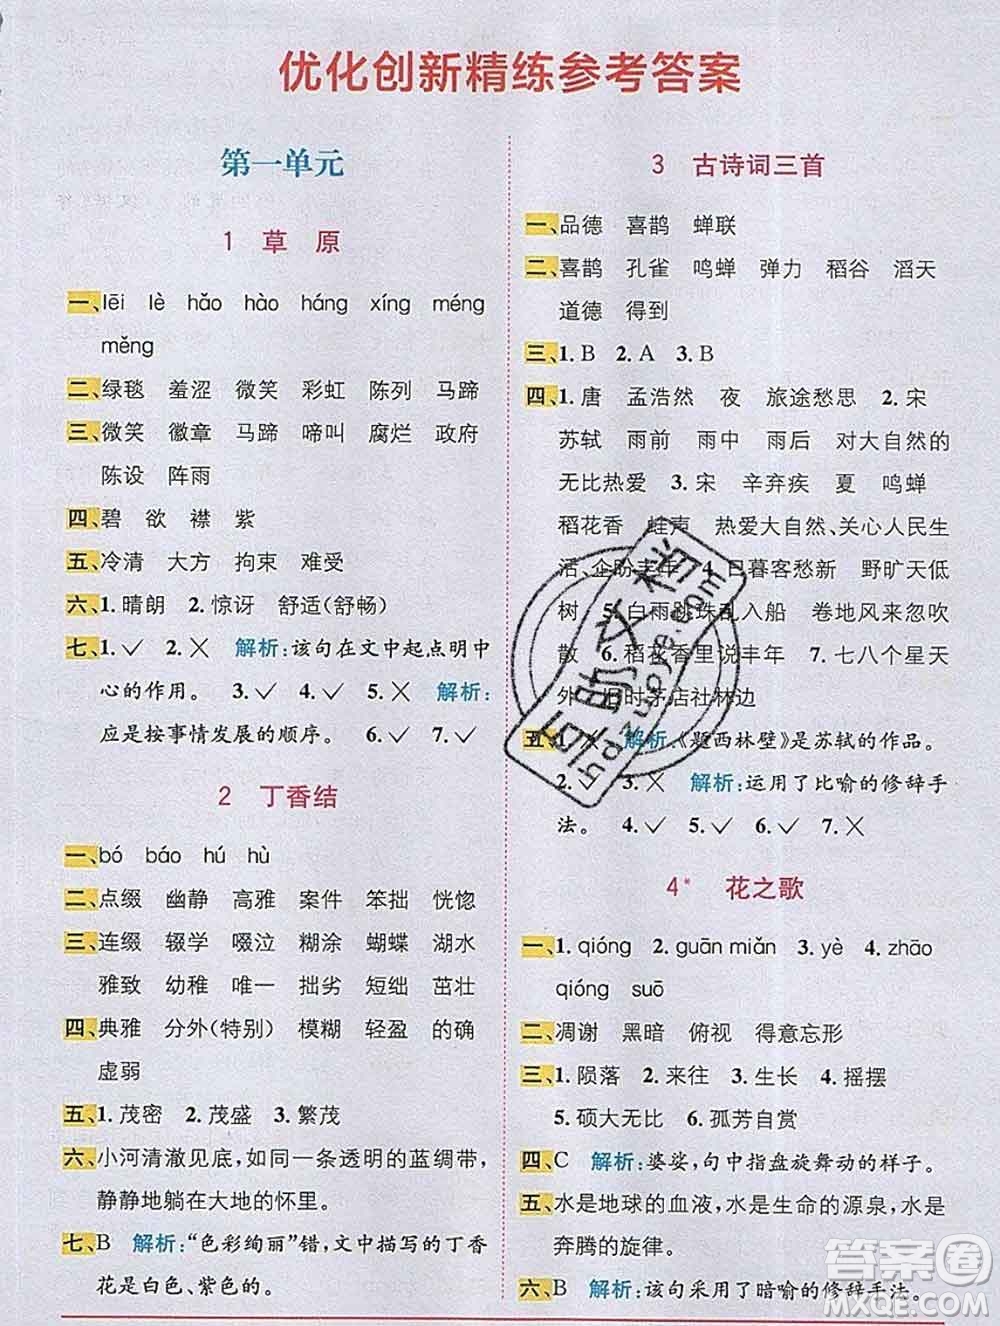 优化创新精练参考答案
第一单元
1 草 原
一、lēi lè hǎo hào háng xíng méng
měng
二、绿毯 羞涩 微笑 彩虹 陈列 马蹄
三、微笑 徽章 马蹄 啼叫 腐烂 政府
陈设 阵雨
四、碧 欲 襟 紫
五、冷清 大方 拘束 难受
六、1. 晴朗 2. 惊讶 舒适(舒畅)
七、1. ✓ 2. ✗ 解析:该句在文中起点明中
心的作用。 3. ✓ 4. ✓ 5. ✗ 解析:
应是按事情发展的顺序。 6. ✓ 7. ✓
2 丁香结
一、bó báo hú hù
二、点缀 幽静 高雅 案件 笨拙 恍惚
三、连缀 辍学 啜泣 糊涂 蝴蝶 湖水
雅致 幼稚 唯一 拙劣 短细 茁壮
四、典雅 分外(特别) 模糊 轻盈 的确
虚弱
五、1. 茂密 2. 茂盛 3. 繁茂
六、小河清澈见底,如同一条透明的蓝绸带,
静静地躺在大地的怀里。
七、B 解析:“色彩绚丽”错,文中描写的丁香
花是白色、紫色的。
3 古诗词三首
一、品德 喜鹊 蝉联
二、喜鹊 孔雀 鸣蝉 弹力 稻谷 滔天
道德 得到
三、1. B 2. A 3. B
四、1. 唐 孟浩然 夜 旅途愁思 2. 宋
苏轼 雨前 雨中 雨后 对大自然的
无比热爱 3. 宋 辛弃疾 夏 鸣蝉
稻花香 蛙声 热爱大自然、关心人民生
活、企盼丰年 4. 日暮客愁新 野旷天低
树 5. 白雨跳珠乱入船 卷地风来忽吹
散 6. 稻花香里说丰年 7. 七八个星天
外 旧时茅店社林边
五、1. ✗ 解析:《题西林壁》是苏轼的作品。
2. ✓ 3. ✗ 解析:运用了比喻的修辞手
法。 4. ✓ 5. ✓ 6. ✓ 7. ✗
4* 花之歌
一、1. qióng 2. guān miǎn 3. yè 4. zhāo
qióng suō
二、凋谢 黑暗 俯视 得意忘形
三、1. 陨落 2. 来往 3. 生长 4. 摇摆
5. 硕大无比 6. 孤芳自赏
四、C 解析:婆娑,句中指盘旋舞动的样子。
五、水是地球的血液,水是生命的源泉,水是
奔腾的旋律。
六、B 解析:该句采用了暗喻的修辞手法。
答案圈
MXQE.COM